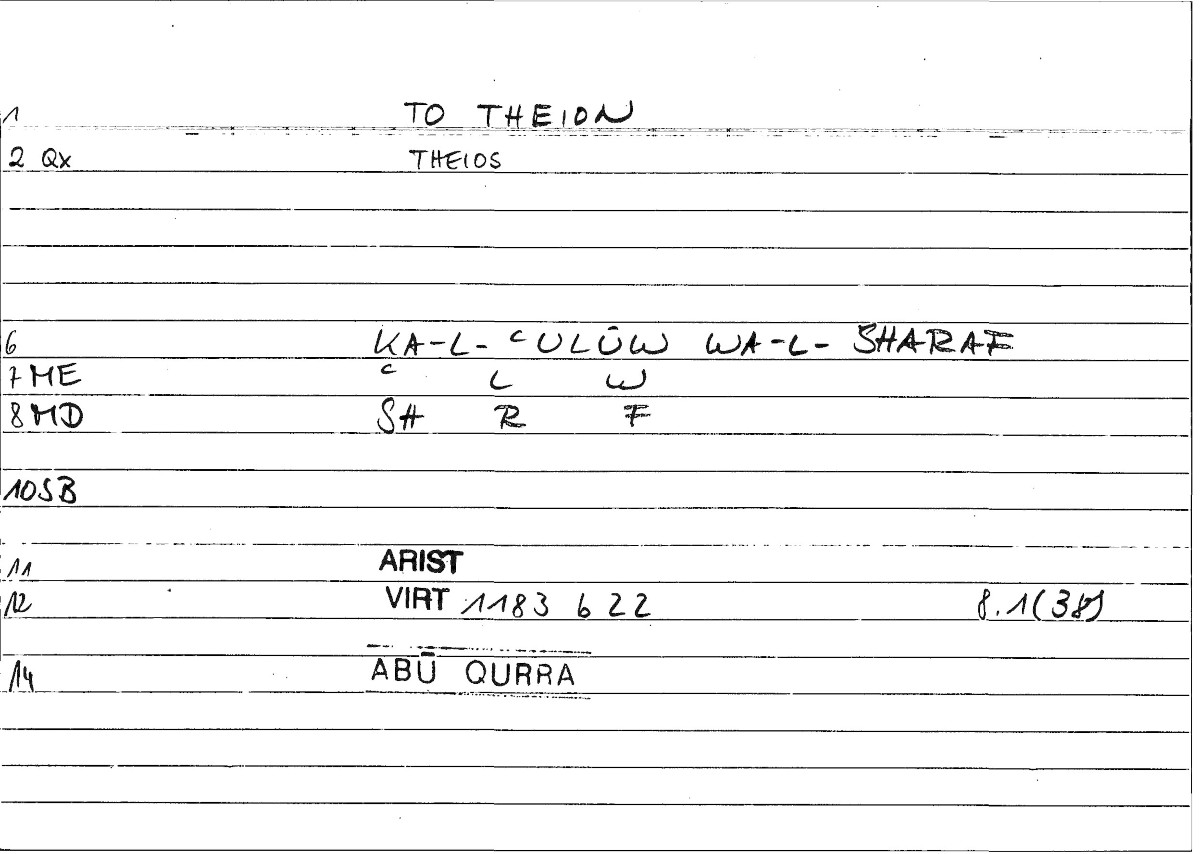 1 TO THEION
2 Qx THEIOS
6 KA-L-ʿULŪW WA-L-SHARAF
7 ME ʿ L W
8 MD SH R F
10 SB
11 ARIST
12 VIRT 1183 b 22 8.1(38)
14 ABŪ QURRA